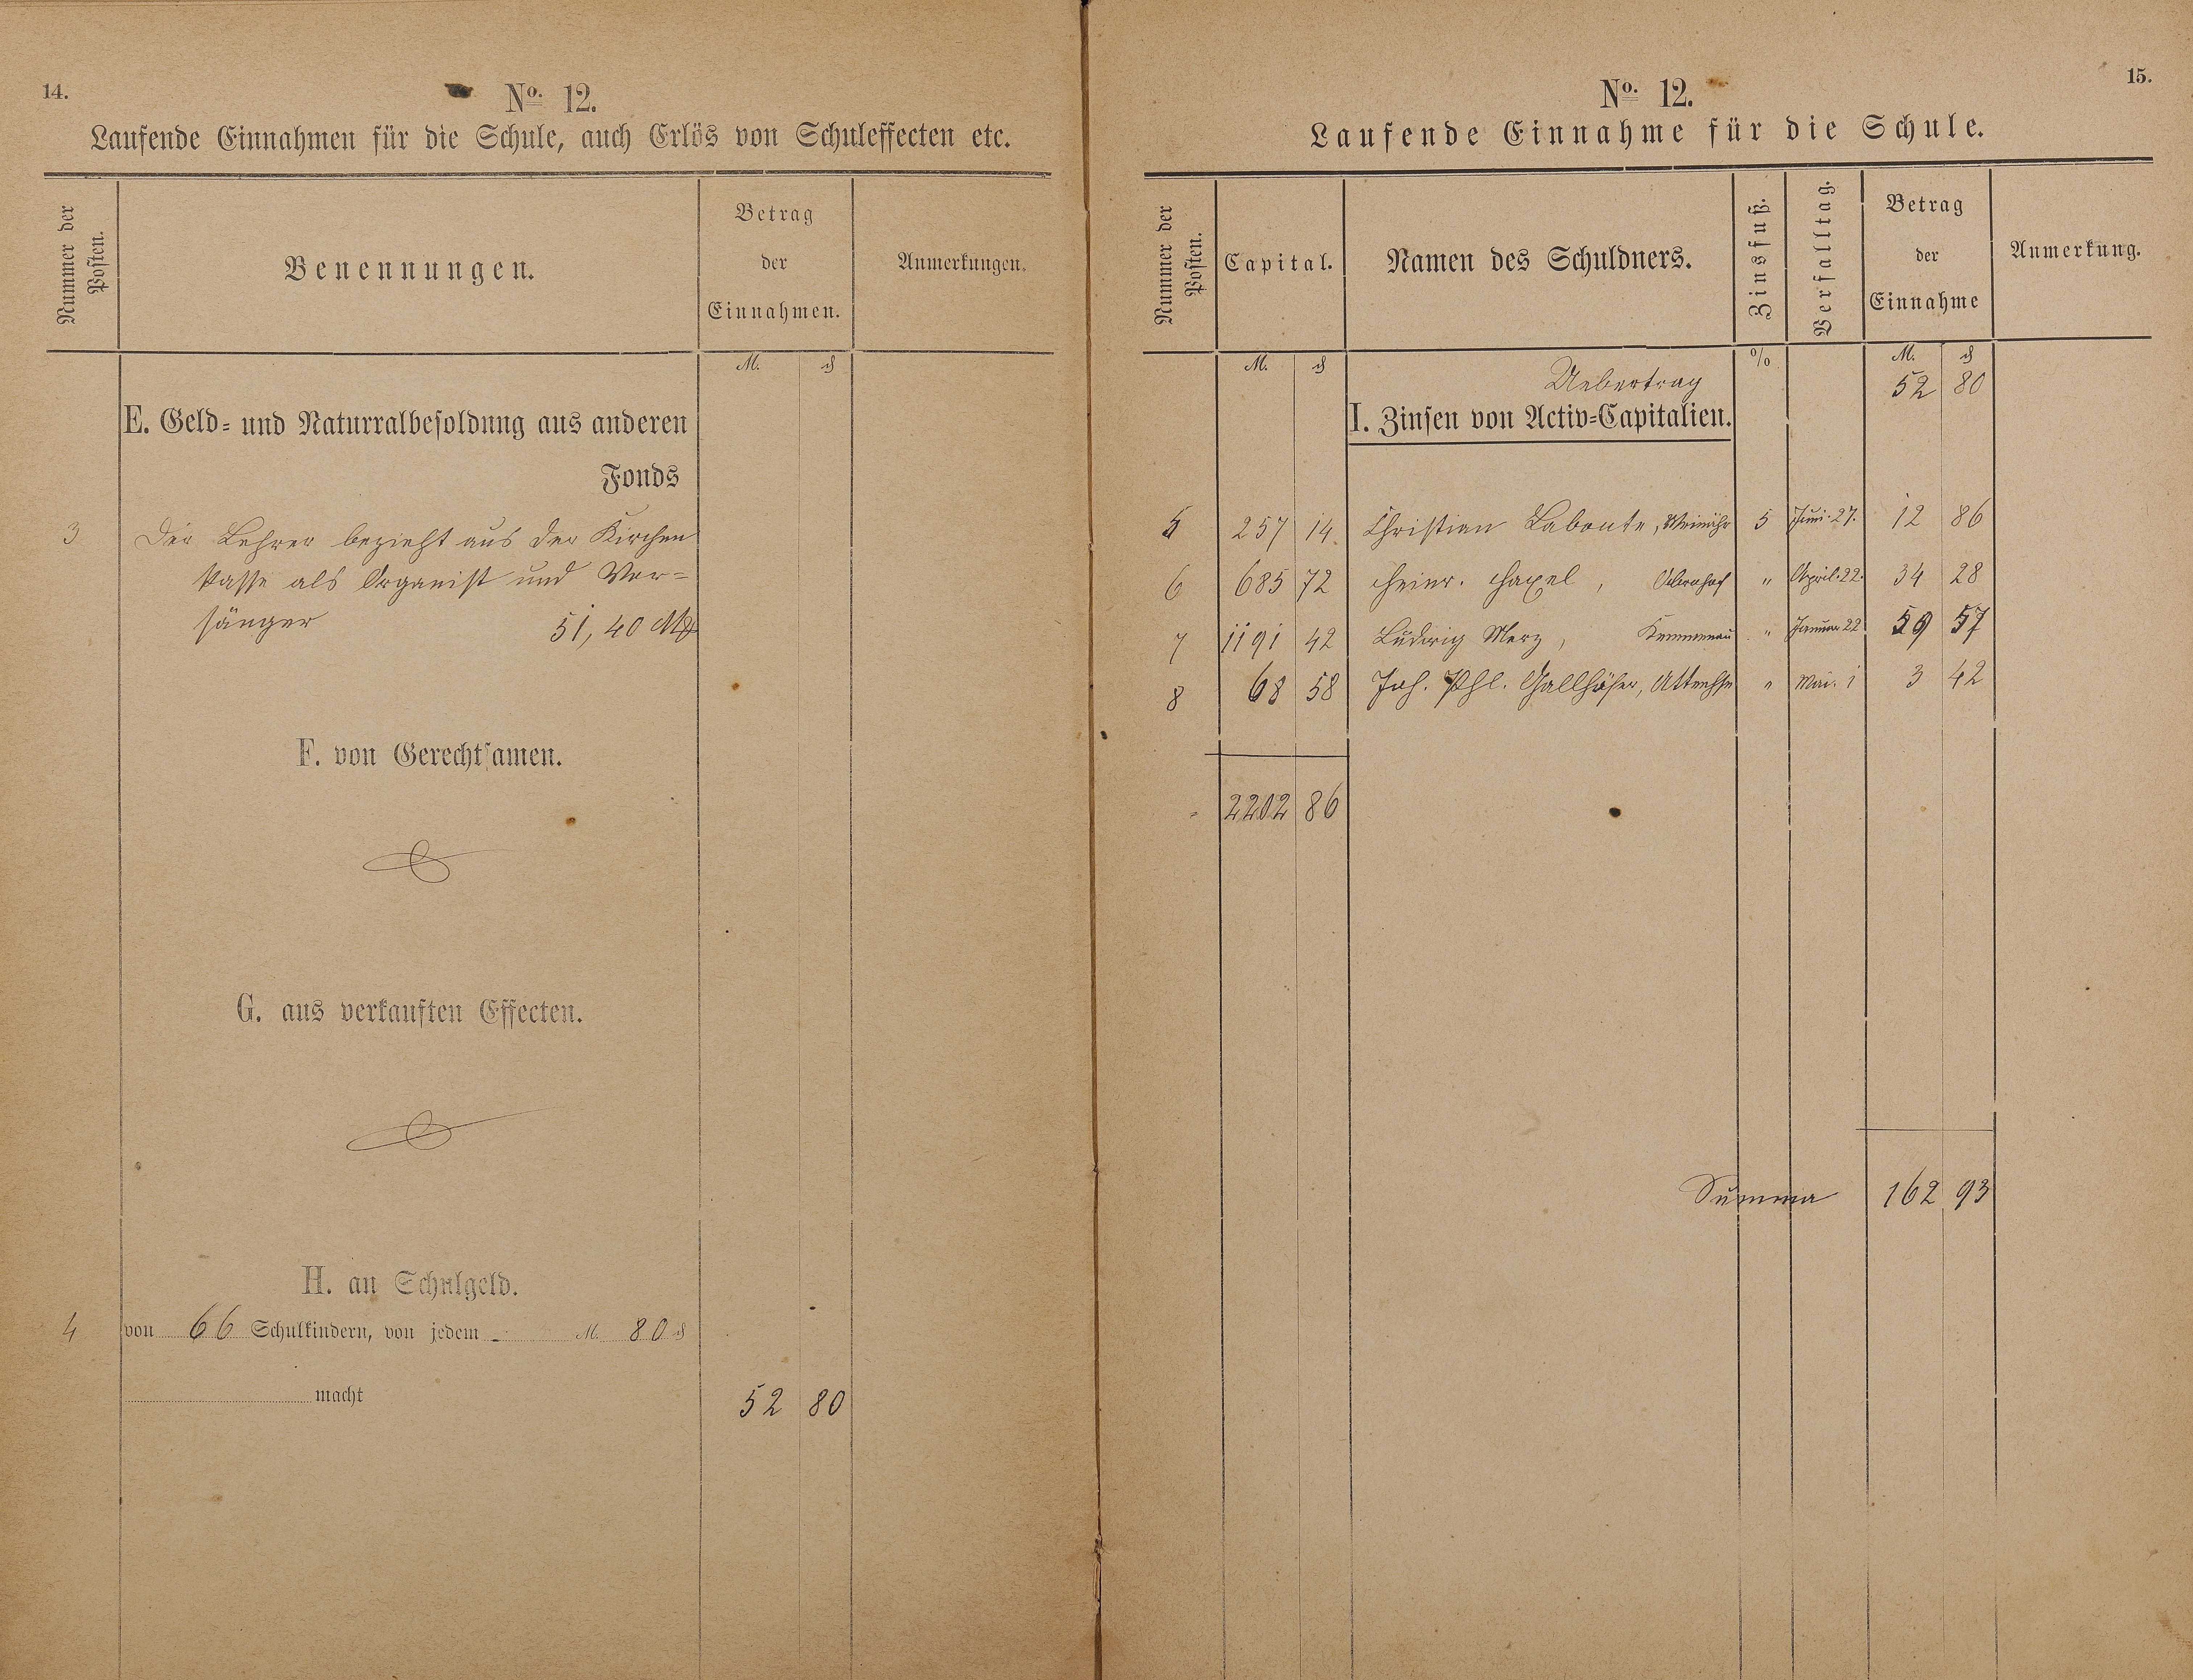 14.
No. 12.
Laufende Einnahmen für die Schule, auch Erlös von Schuleffecten etc.
Nummer der Posten.
Benennungen.
Betrag
der
Einnahmen.
Anmerkungen.
M. ₰
E. Geld- und Naturralbesoldung aus anderen
Fonds
3 Der Lehrer bezieht aus der Kirchen
kasse als Organist und Vor-
sänger 51,40 M
F. von Gerechtsamen.
G. aus verkauften Effecten.
H. an Schulgeld.
4 von 66 Schulkindern, von jedem - M. 80 ₰
macht 52 80
15.
No. 12.
Laufende Einnahme für die Schule.
Nummer der Posten.
Capital.
Namen des Schuldners.
Zinsfuß.
Verfalltag.
Betrag
der
Einnahme
Anmerkung.
M. ₰ % M. ₰
Uebertrag 52 80
I. Zinsen von Activ-Capitalien.
5 257 14 Christian Labonte, Weinähr 5 Juni 27. 12 86
6 685 72 Heinr. , " April 22. 34 28
7 1191 42 Ludwig Merz, Kemmenau " Januar 22 59 57
8 68 58 Joh. Phl. " Mai 1 3 42
2202 86
Summa 162 93